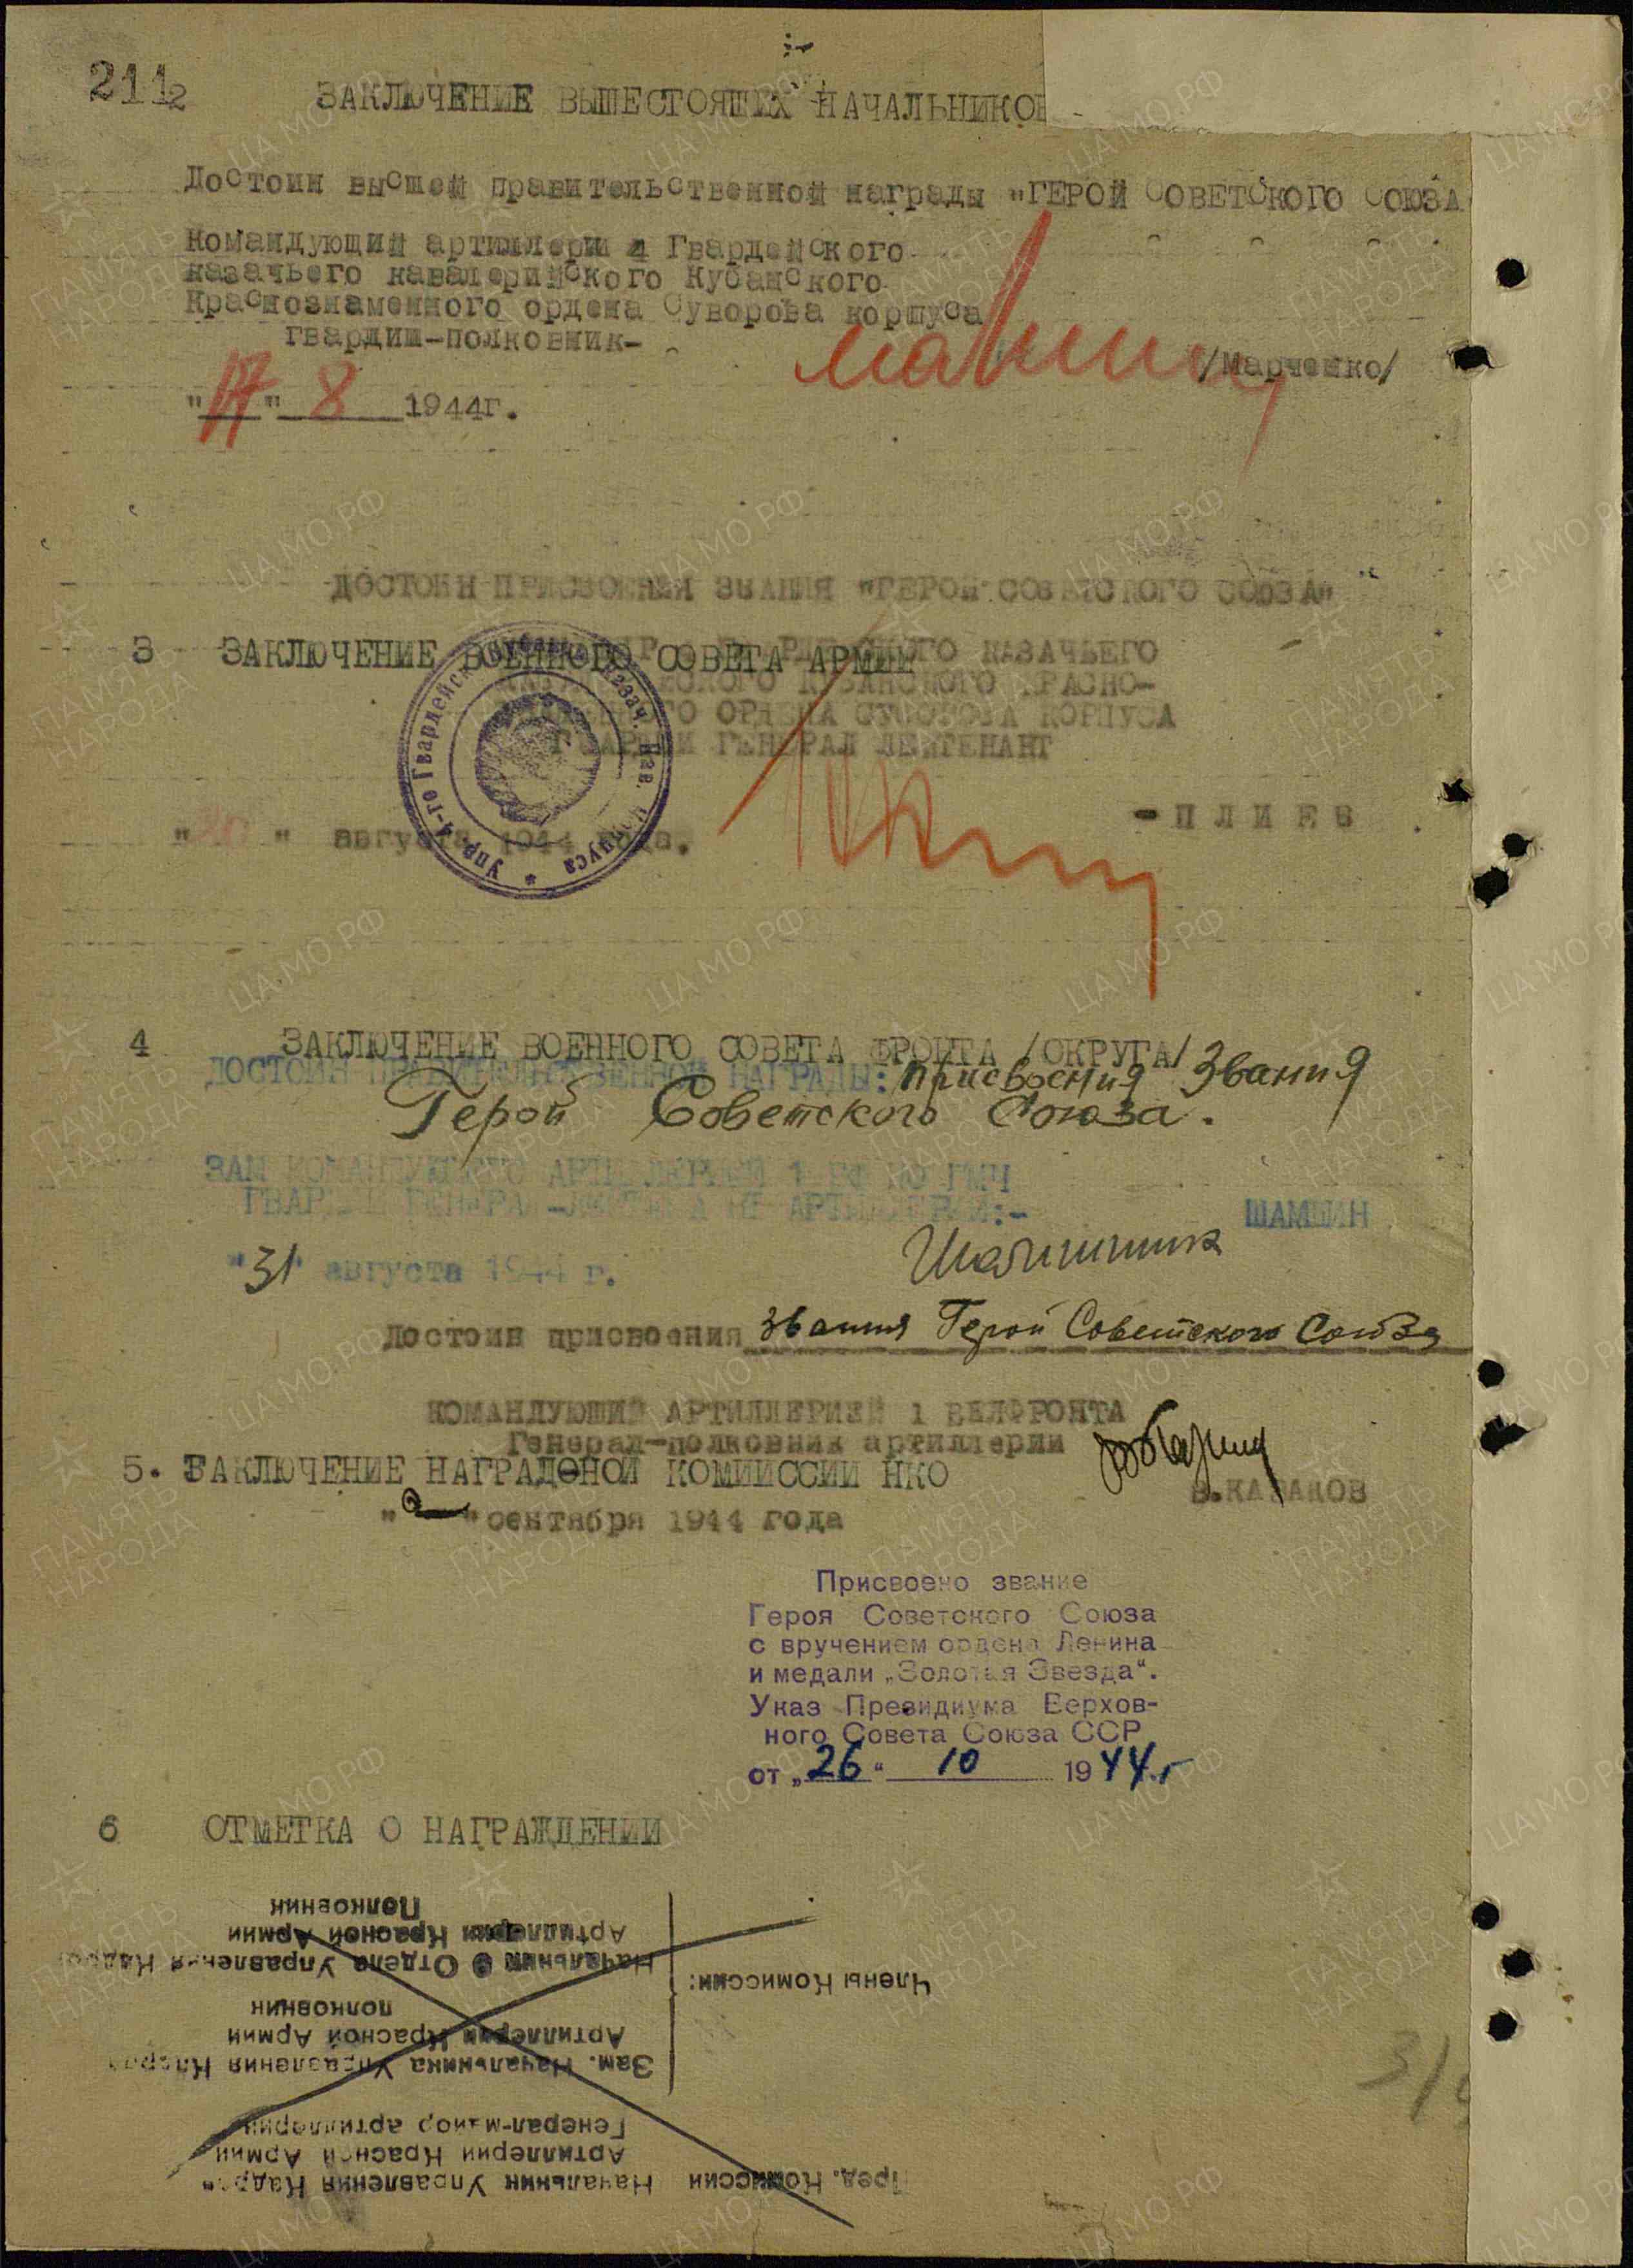 2112
ЗАКЛЮЧЕНИЕ ВЫШЕСТОЯЩИХ НАЧАЛЬНИКОВ
Достоин высшей правительственной награды "ГЕРОЙ СОВЕТСКОГО СОЮЗА
Командующий артиллери 4 Гвардейского
казачьего кавалерийского Кубанского
Краснознаменного ордена Суворова корпуса
гвардии-полковник-
/Марченко/
"17" 8 1944г.
ДОСТОИН ПРИСВОЕНИЯ ЗВАНИЯ "ГЕРОЙ СОВЕТСКОГО СОЮЗА"
3 ЗАКЛЮЧЕНИЕ ВОЕННОГО СОВЕТА АРМИИ
КАЗАЧЬЕГО
КУБАНСКОГО КРАСНО-
ОРДЕНА СУВОРОВА КОРПУСА
ГВАРДИИ ГЕНЕРАЛ ЛЕЙТЕНАНТ
- ПЛИЕВ
" " августа 1944 года.
Упр. 4-го Гвардейск. Кубанск. Казач. Кав. Корпуса *
4 ЗАКЛЮЧЕНИЕ ВОЕННОГО СОВЕТА ФРОНТА /ОКРУГА/
ДОСТОИН ПРАВИТЕЛЬСТВЕННОЙ НАГРАДЫ: присвоения звания
Герой Советского Союза.
ЗАМ КОМАНДУЮЩЕГО АРТИЛЛЕРИЕЙ 1 БФ ПО ГМЧ
ГВАРДИИ ГЕНЕРАЛ-ЛЕЙТЕНАНТ АРТИЛЛЕРИИ:-
ШАМШИН
"31" августа 1944 г.
Достоин присвоения звания Герой Советского Союза
КОМАНДУЮЩИЙ АРТИЛЛЕРИЕЙ 1 БЕЛФРОНТА
Генерал-полковник артиллерии
5. ЗАКЛЮЧЕНИЕ НАГРАДНОЙ КОМИИССИИ НКО
В.КАЗАКОВ
"2" сентября 1944 года
Присвоено звание
Героя Советского Союза
с вручением ордена Ленина
и медали „Золотая Звезда".
Указ Президиума Верхов-
ного Совета Союза ССР
от „26" 10 1944 г
6 ОТМЕТКА О НАГРАЖДЕНИИ
Пред. Комиссии
Начальник Управления Кадров
Артиллерии Красной Армии
Генерал-майор артиллерии
Члены Комиссии:
Зам. Начальника Управления Кадров
Артиллерии Красной Армии
полковник
Начальник Отдела Управления Кадров
Артиллерии Красной Армии
Полковник
ПАМЯТЬ НАРОДА
ЦАМО.РФ